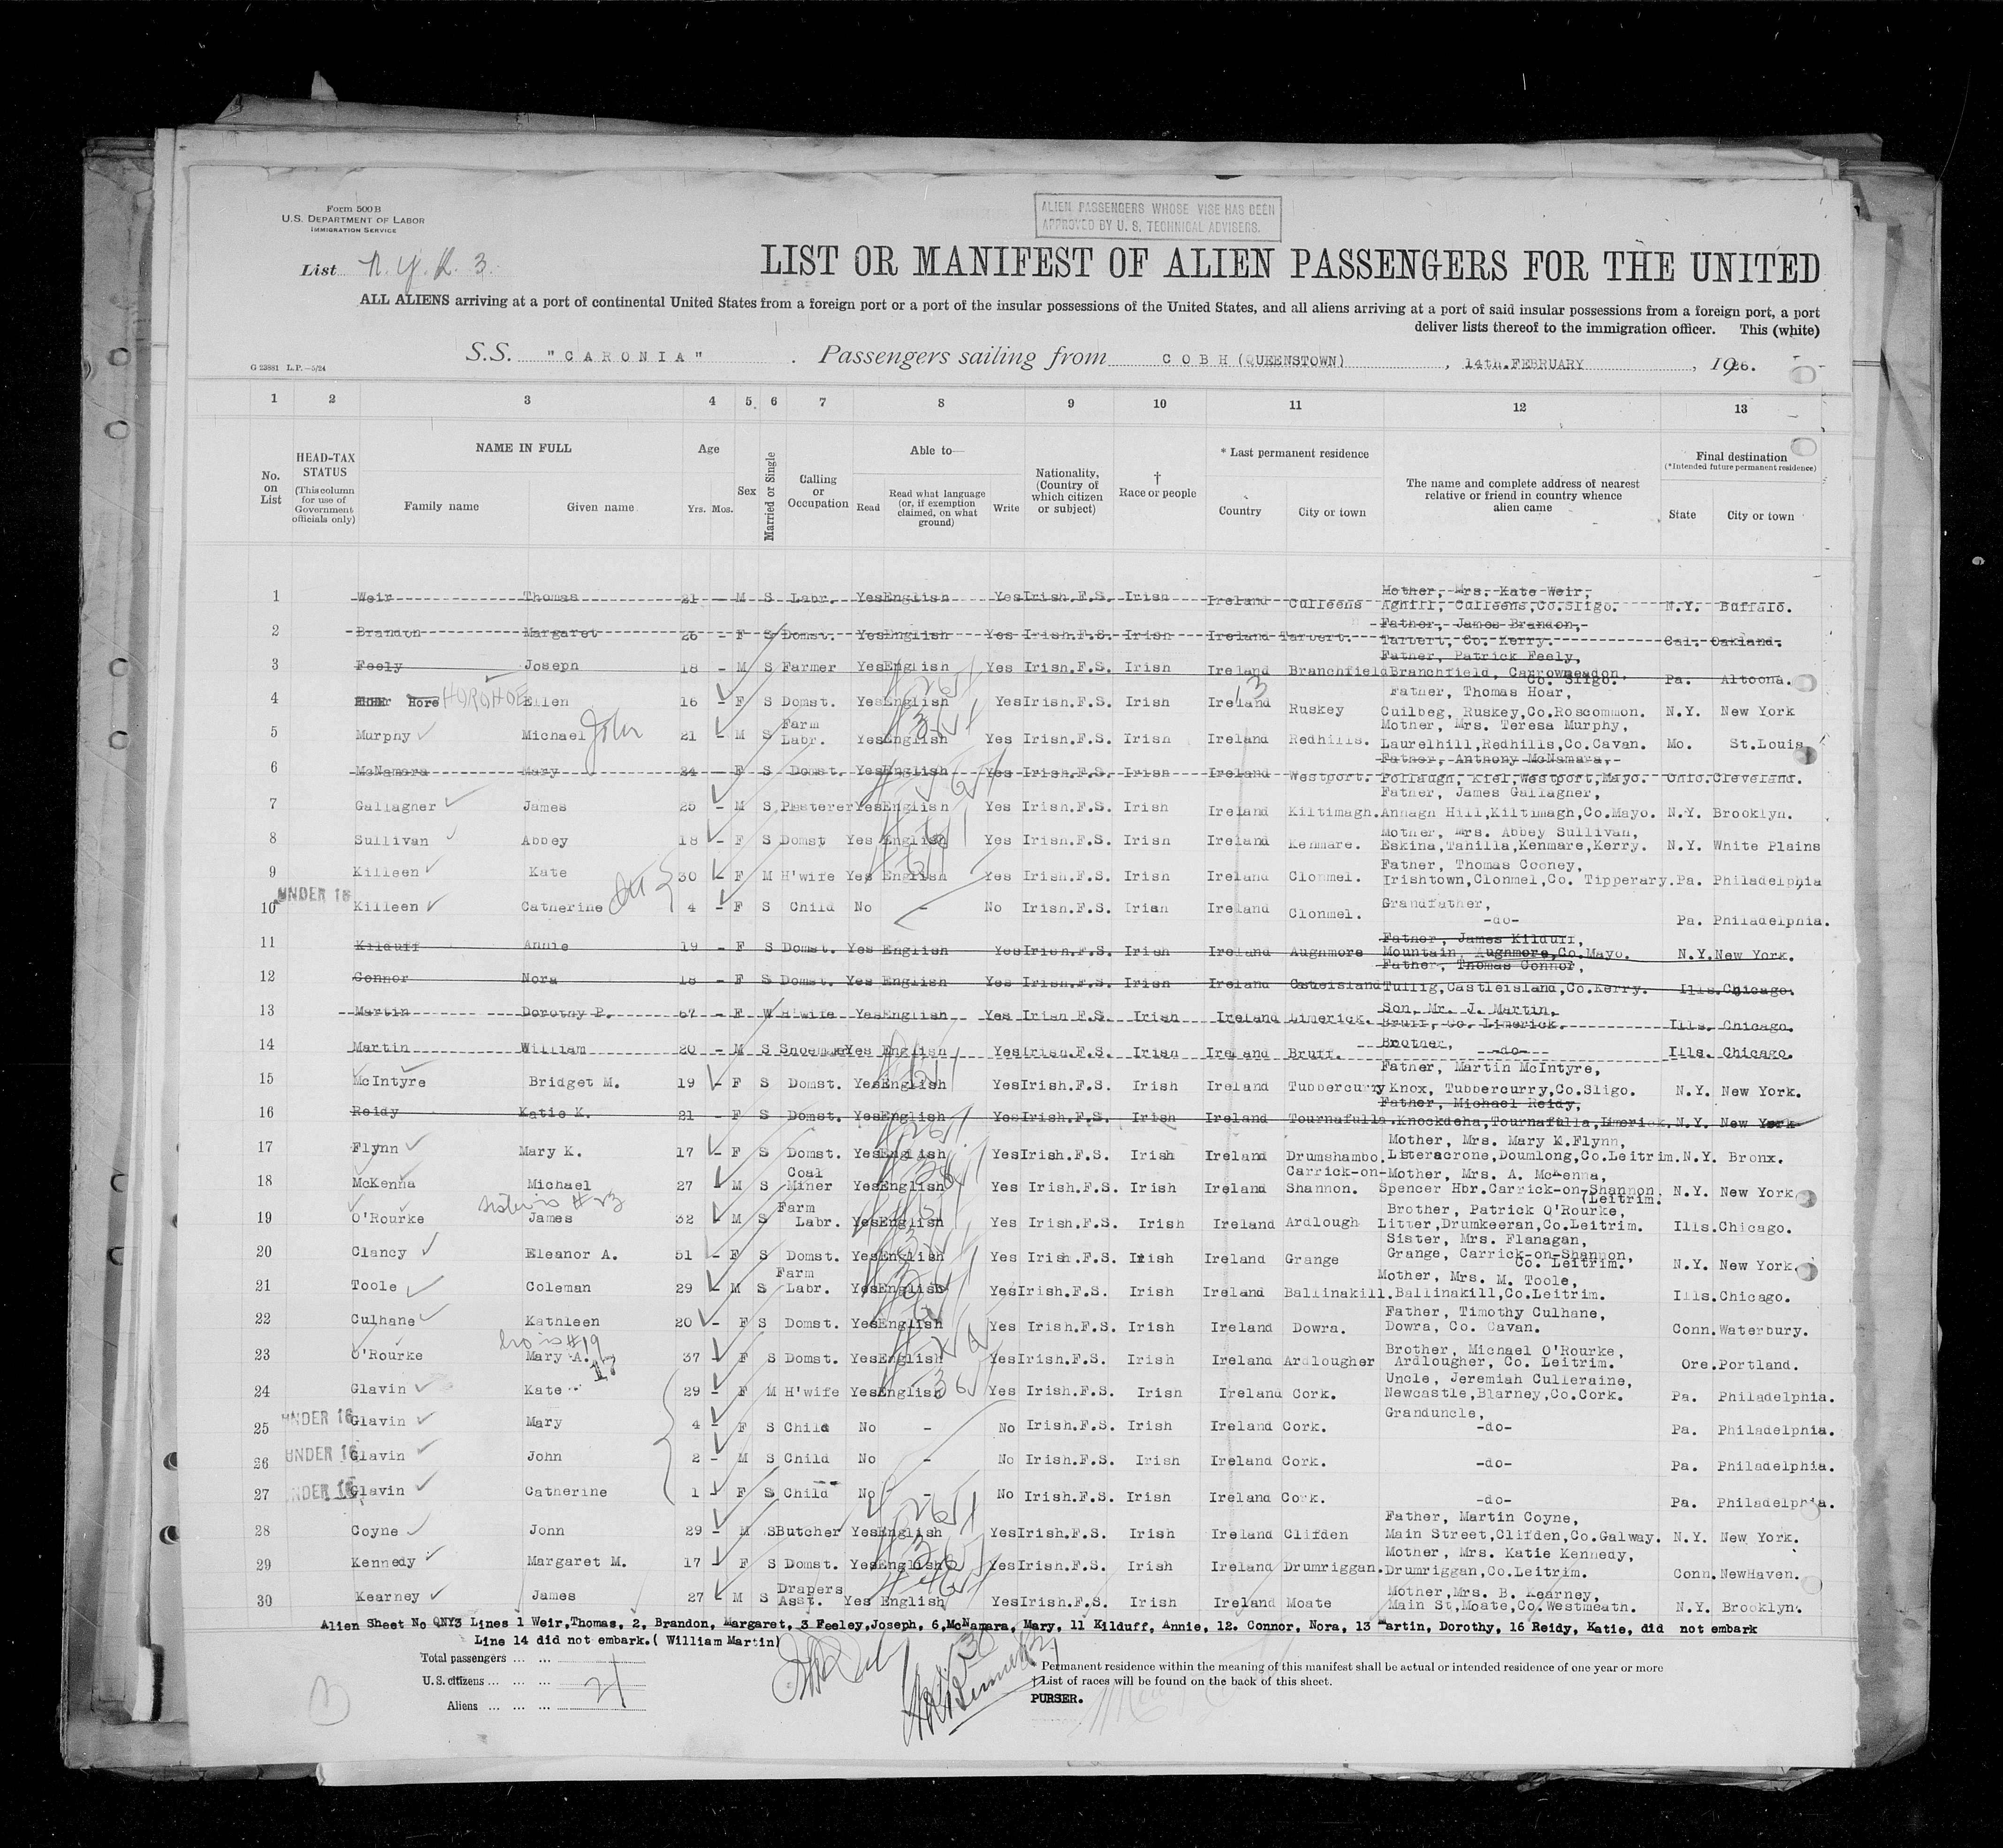 Form 500B
U.S. DEPARTMENT OF LABOR
IMMIGRATION SERVICE
ALIEN PASSENGERS WHOSE VISE HAS BEEN
APPROVED BY U. S. TECHNICAL ADVISERS.
List N.Y.Q. 3.
LIST OR MANIFEST OF ALIEN PASSENGERS FOR THE UNITED
ALL ALIENS arriving at a port of continental United States from a foreign port or a port of the insular possessions of the United States, and all aliens arriving at a port of said insular possessions from a foreign port, a port
deliver lists thereof to the immigration officer. This (white)
S.S. "CARONIA" . Passengers sailing from COBH (QUEENSTOWN) , 14th.FEBRUARY , 1926.
G 23881 L.P.—5/24
1 2 3 4 5 6 7 8 9 10 11 12 13
No. on List
HEAD-TAX STATUS (This column for use of Government officials only)
NAME IN FULL
Family name Given name
Age
Yrs. Mos.
Sex
Married or Single
Calling or Occupation
Able to—
Read Read what language (or, if exemption claimed, on what ground) Write
Nationality, (Country of which citizen or subject)
† Race or people
* Last permanent residence
Country City or town
The name and complete address of nearest relative or friend in country whence alien came
Final destination
(*Intended future permanent residence)
State City or town
1 Weir Thomas 21 - M S Labr. Yes English Yes Irish.F.S. Irish Ireland Culleens Mother, Mrs. Kate Weir, Aghill, Culleens,Co.Sligo. N.Y. Buffalo.
2 Brandon Margaret 26 - F S Domst. Yes English Yes Irish.F.S. Irish Ireland Tarbert. Father, James Brandon, Tarbert, Co. Kerry. Cal. Oakland.
3 Feely Joseph 18 - M S Farmer Yes English Yes Irish.F.S. Irish Ireland Branchfield Father, Patrick Feely, Branchfield, Carrowneadon, Co. Sligo. Pa. Altoona.
4 Hore HOROHOE Ellen 16 - F S Domst. Yes English Yes Irish.F.S. Irish Ireland Ruskey Father, Thomas Hoar, Cuilbeg, Ruskey,Co.Roscommon. N.Y. New York
5 Murphy Michael John 21 - M S Farm Labr. Yes English Yes Irish.F.S. Irish Ireland Redhills. Mother, Mrs. Teresa Murphy, Laurelhill,Redhills,Co.Cavan. Mo. St.Louis
6 McNamara Mary 24 - F S Domst. Yes English Yes Irish.F.S. Irish Ireland Westport. Father, Anthony McNamara, Pollaugh, Kiel,Westport,Mayo. Ohio.Cleveland.
7 Gallagher James 25 - M S Plasterer Yes English Yes Irish.F.S. Irish Ireland Kiltimagh. Father, James Gallagher, Annagh Hill,Kiltimagh,Co.Mayo. N.Y. Brooklyn.
8 Sullivan Abbey 18 - F S Domst Yes English Yes Irish.F.S. Irish Ireland Kenmare. Mother, Mrs. Abbey Sullivan, Eskina,Tahilla,Kenmare,Kerry. N.Y. White Plains
9 Killeen Kate 30 - F M H'wife Yes English Yes Irish.F.S. Irish Ireland Clonmel. Father, Thomas Cooney, Irishtown,Clonmel,Co. Tipperary. Pa. Philadelphia
UNDER 16
10 Killeen Catherine 4 - F S Child No - No Irish.F.S. Irish Ireland Clonmel. Grandfather, -do- Pa. Philadelphia.
11 Kilduff Annie 19 - F S Domst. Yes English Yes Irish.F.S. Irish Ireland Aughmore Father, James Kilduff, Mountain, Aughmore,Co.Mayo. N.Y. New York.
12 Connor Nora 18 - F S Domst. Yes English Yes Irish.F.S. Irish Ireland Castleisland Father, Thomas Connor, Tullig,Castleisland,Co.Kerry. Ills.Chicago.
13 Martin Dorothy P. 67 - F W H'wife Yes English Yes Irish F.S. Irish Ireland Limerick. Son, Mr. J. Martin, Bruff, Co. Limerick. Ills. Chicago.
14 Martin William 20 - M S Shoemaker Yes English Yes Irish.F.S. Irish Ireland Bruff. Brother, -do- Ills. Chicago.
15 McIntyre Bridget M. 19 - F S Domst. Yes English Yes Irish.F.S. Irish Ireland Tubbercurry Father, Martin McIntyre, Knox, Tubbercurry,Co.Sligo. N.Y. New York.
16 Reidy Katie K. 21 - F S Domst. Yes English Yes Irish.F.S. Irish Ireland Tournafulla. Father, Michael Reidy, Knockdeha,Tournafulla,Limerick. N.Y. New York
17 Flynn Mary K. 17 - F S Domst. Yes English Yes Irish.F.S. Irish Ireland Drumshambo. Mother, Mrs. Mary K.Flynn, Listeracrone,Doumlong,Co.Leitrim. N.Y. Bronx.
18 McKenna Michael 27 - M S Coal Miner Yes English Yes Irish.F.S. Irish Ireland Carrick-on-Shannon. Mother, Mrs. A. McKenna, Spencer Hbr.Carrick-on-Shannon. (Leitrim. N.Y. New York
sister is #23
19 O'Rourke James 32 - M S Farm Labr. Yes English Yes Irish.F.S. Irish Ireland Ardlough Brother, Patrick O'Rourke, Litter,Drumkeeran,Co.Leitrim. Ills.Chicago.
20 Clancy Eleanor A. 51 - F S Domst. Yes English Yes Irish.F.S. Irish Ireland Grange Sister, Mrs. Flanagan, Grange, Carrick-on-Shannon, Co. Leitrim. N.Y. New York.
21 Toole Coleman 29 - M S Farm Labr. Yes English Yes Irish.F.S. Irish Ireland Ballinakill. Mother, Mrs. M. Toole, Ballinakill,Co.Leitrim. Ills.Chicago.
22 Culhane Kathleen 20 - F S Domst. Yes English Yes Irish.F.S. Irish Ireland Dowra. Father, Timothy Culhane, Dowra, Co. Cavan. Conn.Waterbury.
bro is #19
23 O'Rourke Mary A. 37 - F S Domst. Yes English Yes Irish.F.S. Irish Ireland Ardlougher Brother, Michael O'Rourke, Ardlougher, Co. Leitrim. Ore.Portland.
24 Glavin Kate 29 - F M H'wife Yes English Yes Irish.F.S. Irish Ireland Cork. Uncle, Jeremiah Culleraine, Newcastle,Blarney,Co.Cork. Pa. Philadelphia.
UNDER 16
25 Glavin Mary 4 - F S Child No - No Irish.F.S. Irish Ireland Cork. Granduncle, -do- Pa. Philadelphia.
UNDER 16
26 Glavin John 2 - M S Child No - No Irish.F.S. Irish Ireland Cork. -do- Pa. Philadelphia.
UNDER 16
27 Glavin Catherine 1 - F S Child No - No Irish.F.S. Irish Ireland Cork. -do- Pa. Philadelphia.
28 Coyne John 29 - M S Butcher Yes English Yes Irish.F.S. Irish Ireland Clifden Father, Martin Coyne, Main Street,Clifden,Co.Galway. N.Y. New York.
29 Kennedy Margaret M. 17 - F S Domst. Yes English Yes Irish.F.S. Irish Ireland Drumriggan. Mother, Mrs. Katie Kennedy, Drumriggan,Co.Leitrim. Conn.NewHaven.
30 Kearney James 27 - M S Drapers Asst. Yes English Yes Irish.F.S. Irish Ireland Moate Mother,Mrs. B. Kearney, Main St,Moate,Co.Westmeath. N.Y. Brooklyn.
Alien Sheet No QNY3 Lines 1 Weir,Thomas, 2, Brandon, Margaret, 3 Feeley,Joseph, 6,McNamara, Mary, 11 Kilduff, Annie, 12. Connor, Nora, 13 Martin, Dorothy, 16 Reidy, Katie, did not embark
Line 14 did not embark.( William Martin)
Total passengers ... ...
U.S. citizens ... ... ...
Aliens ... ... ... 21
* Permanent residence within the meaning of this manifest shall be actual or intended residence of one year or more
† List of races will be found on the back of this sheet.
PURSER.